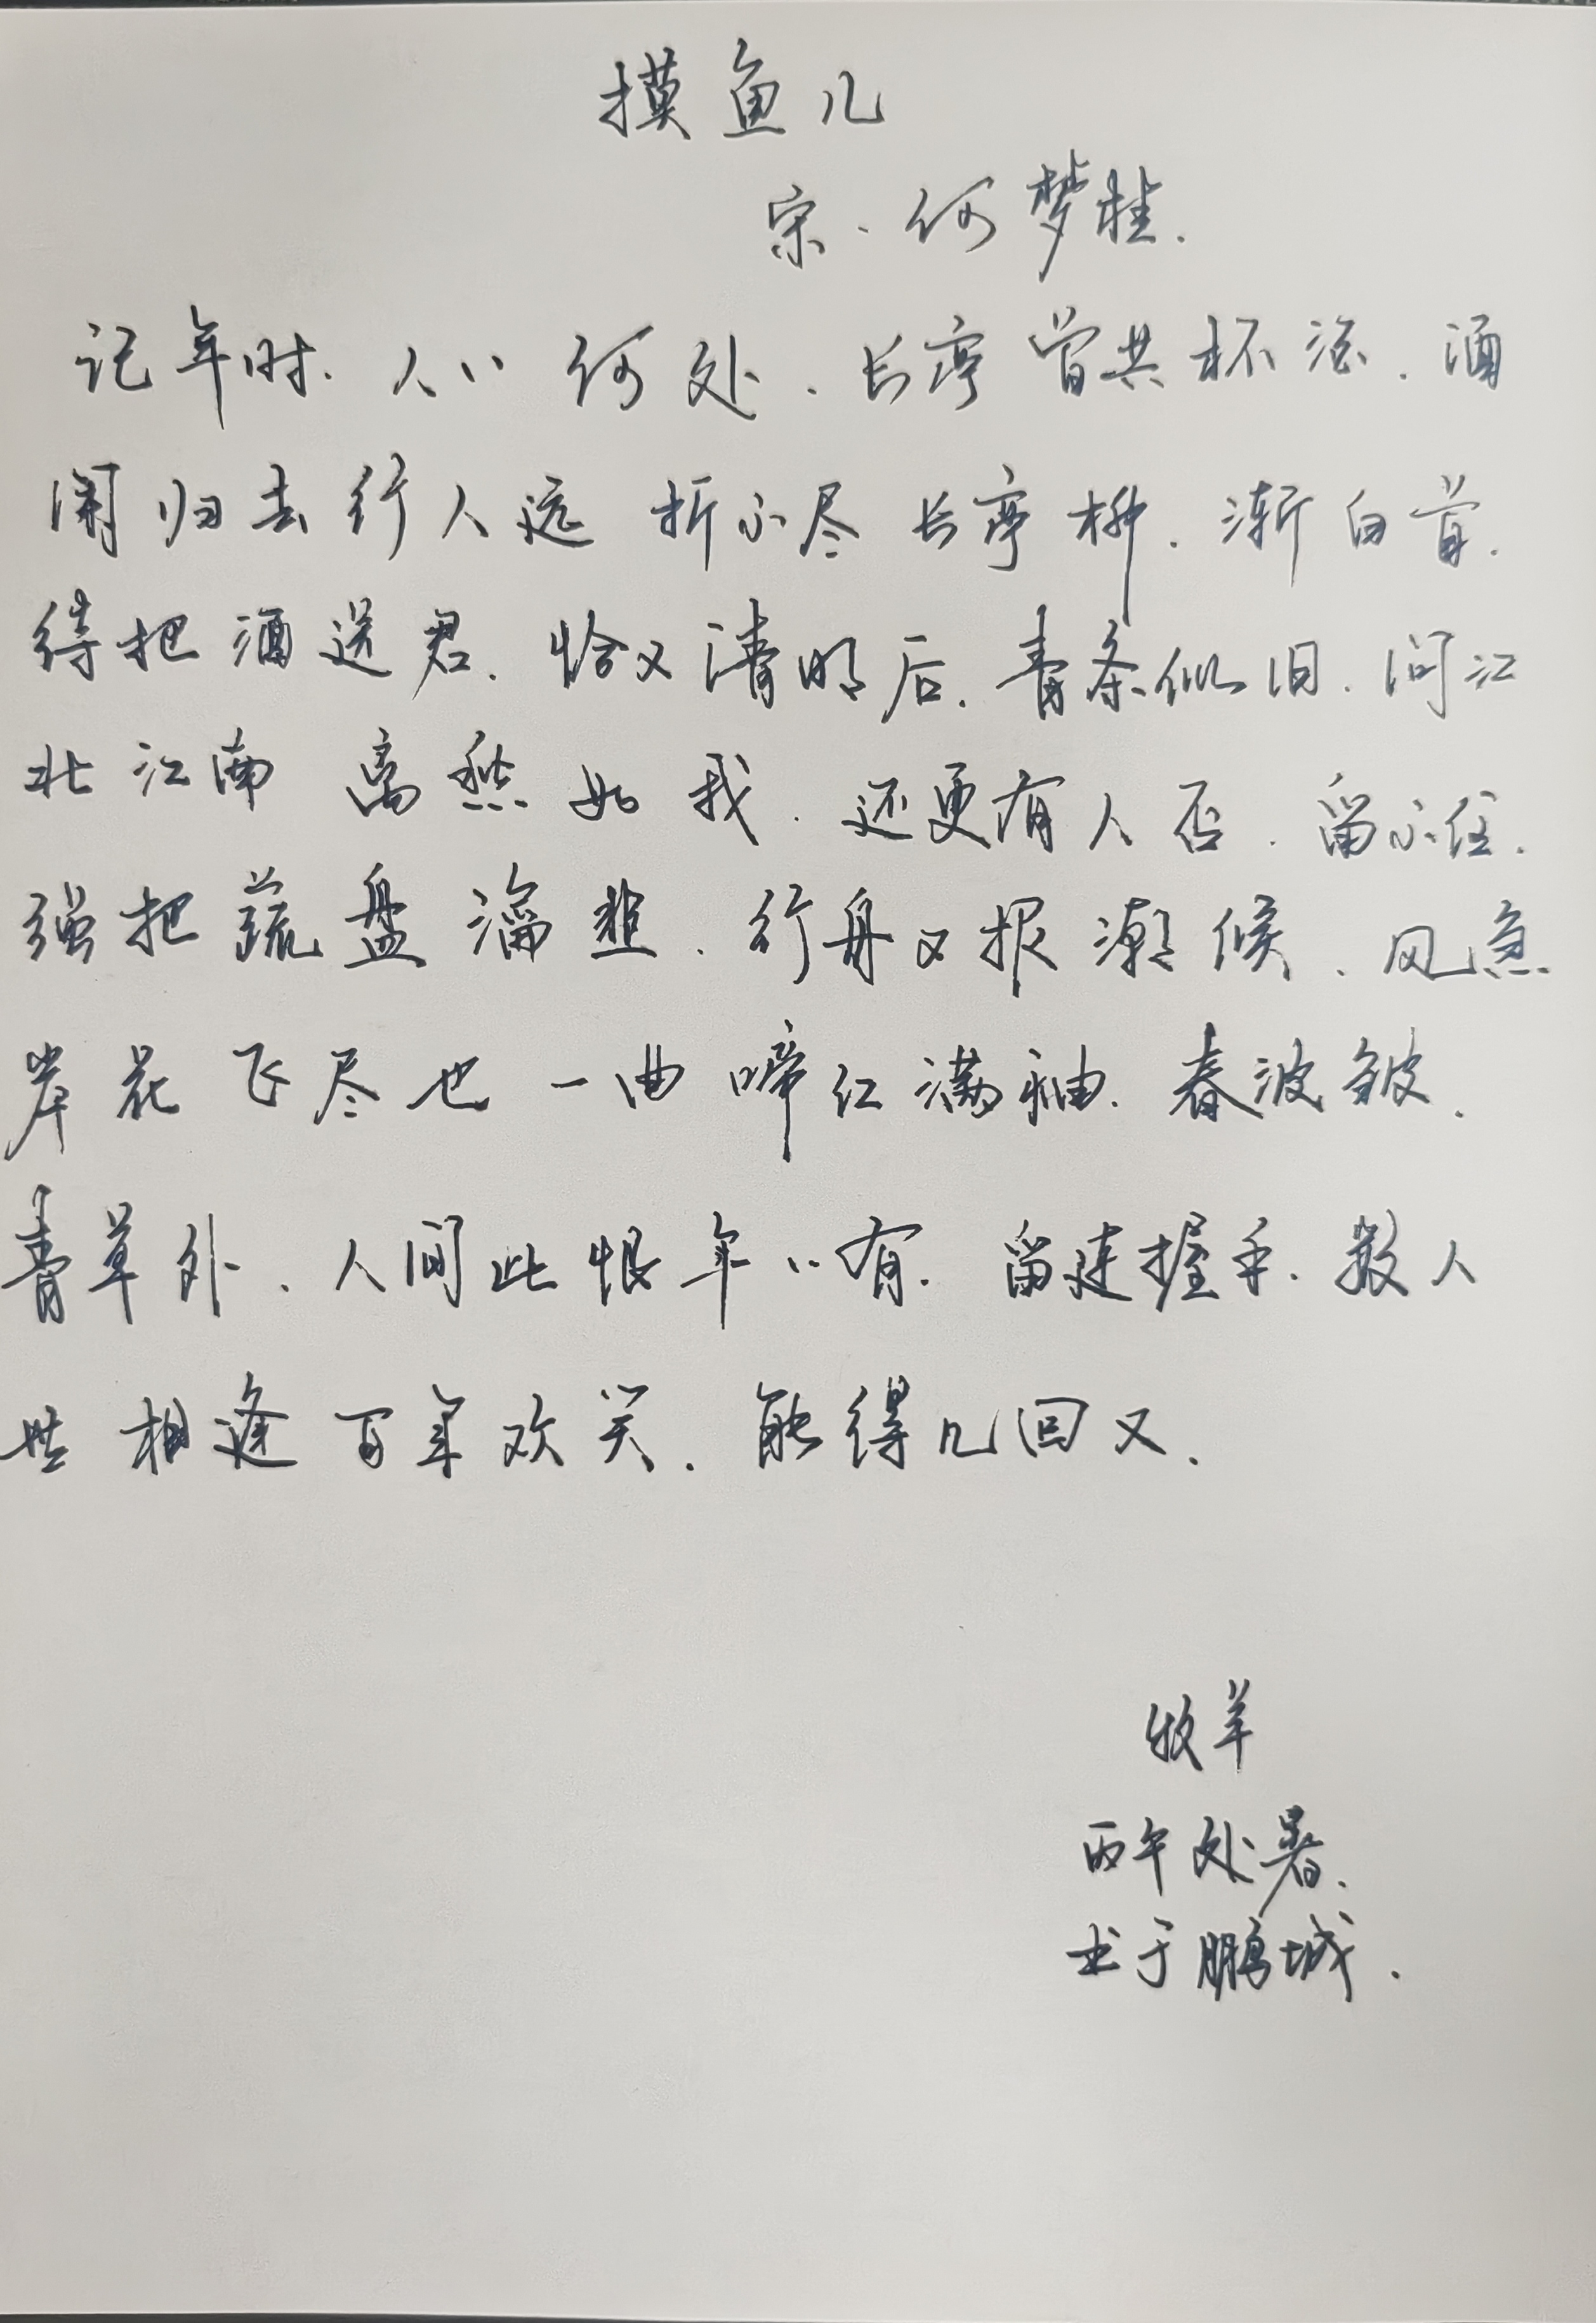 摸鱼儿
宋.何梦桂.
记年时.人人何处.长亭曾共杯酒.酒
阑归去行人远 折不尽长亭柳.渐白首.
待把酒送君.恰又清明后.青条似旧.问江
北江南 离愁如我.还更有人否.留不住.
强把蔬盘瀹韭.行舟又报潮候.风急
岸花飞尽也 一曲啼红满袖.春波皱.
青草外.人间此恨年年有.留连握手.数人
世相逢百年欢笑.能得几回又.
牧羊
丙午处暑.
书于鹏城.